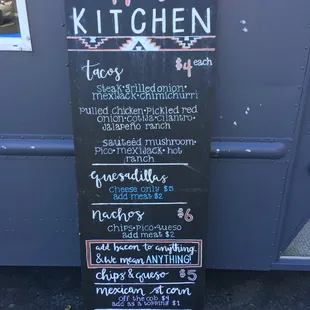 KITCHEN
tacos $4 each
steak·grilled onion·
mexijack·chimichurri
pulled chicken·pickled red
onion·cotija·cilantro·
jalapeño ranch
sauteed mushroom·
pico·mexijack·hot
ranch
quesadillas
cheese only $5
add meat $2
nachos $6
chips·pico·queso
add meat $2
add bacon to anything
& we mean ANYTHING!
chips & queso $5
mexican st corn
off the cob $4
add as a topping $1